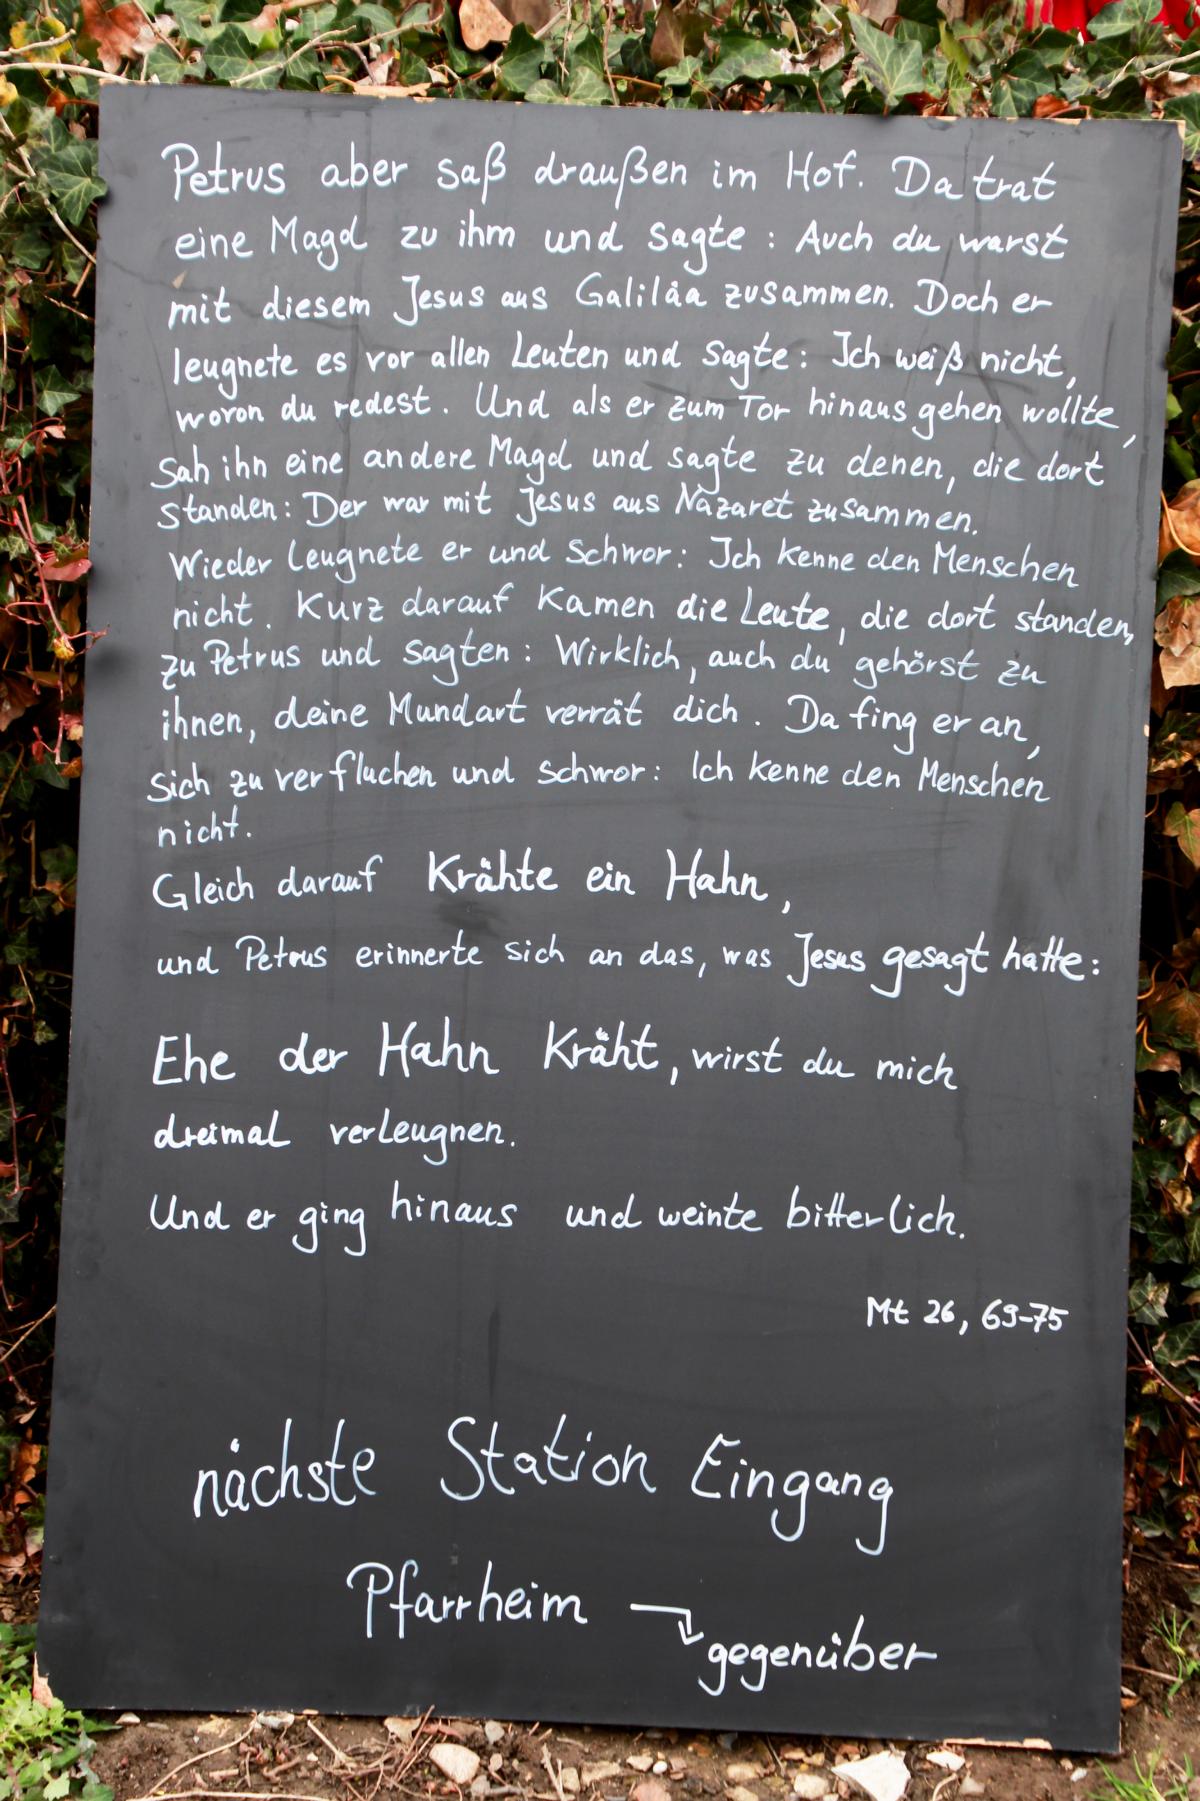 Petrus aber saß draußen im Hof. Da trat
eine Magd zu ihm und sagte : Auch du warst
mit diesem Jesus aus Galiläa zusammen. Doch er
leugnete es vor allen Leuten und sagte: Ich weiß nicht,
wovon du redest. Und als er zum Tor hinausgehen wollte,
sah ihn eine andere Magd und sagte zu denen, die dort
standen: Der war mit Jesus aus Nazaret zusammen.
Wieder leugnete er und schwor: Ich kenne den Menschen
nicht. Kurz darauf kamen die Leute, die dort standen,
zu Petrus und sagten: Wirklich, auch du gehörst zu
ihnen, deine Mundart verrät dich. Da fing er an,
sich zu verfluchen und schwor: Ich kenne den Menschen
nicht.
Gleich darauf Krähte ein Hahn,
und Petrus erinnerte sich an das, was Jesus gesagt hatte:
Ehe der Hahn Kräht, wirst du mich
dreimal verleugnen.
Und er ging hinaus und weinte bitterlich.
Mt 26, 69-75
nächste Station Eingang
Pfarrheim
gegenüber